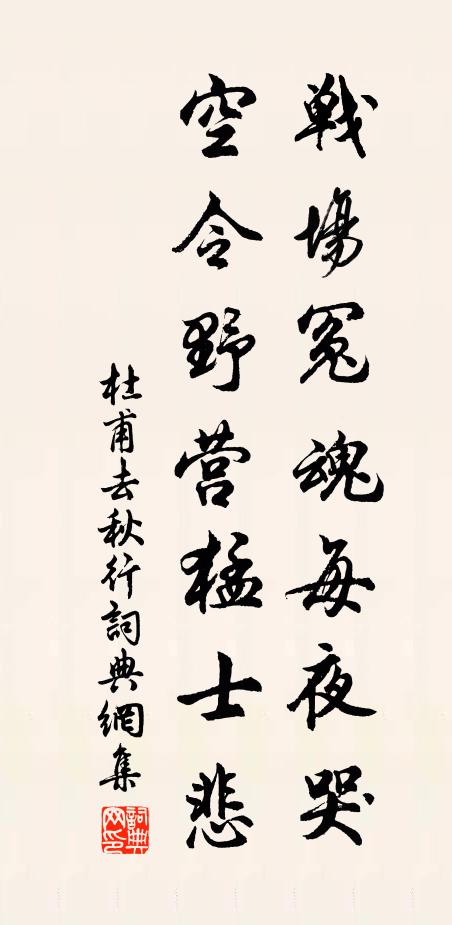 戦場冤魂每夜哭
空令野营猛士悲
杜甫去秋行詞典網集
詞典网印